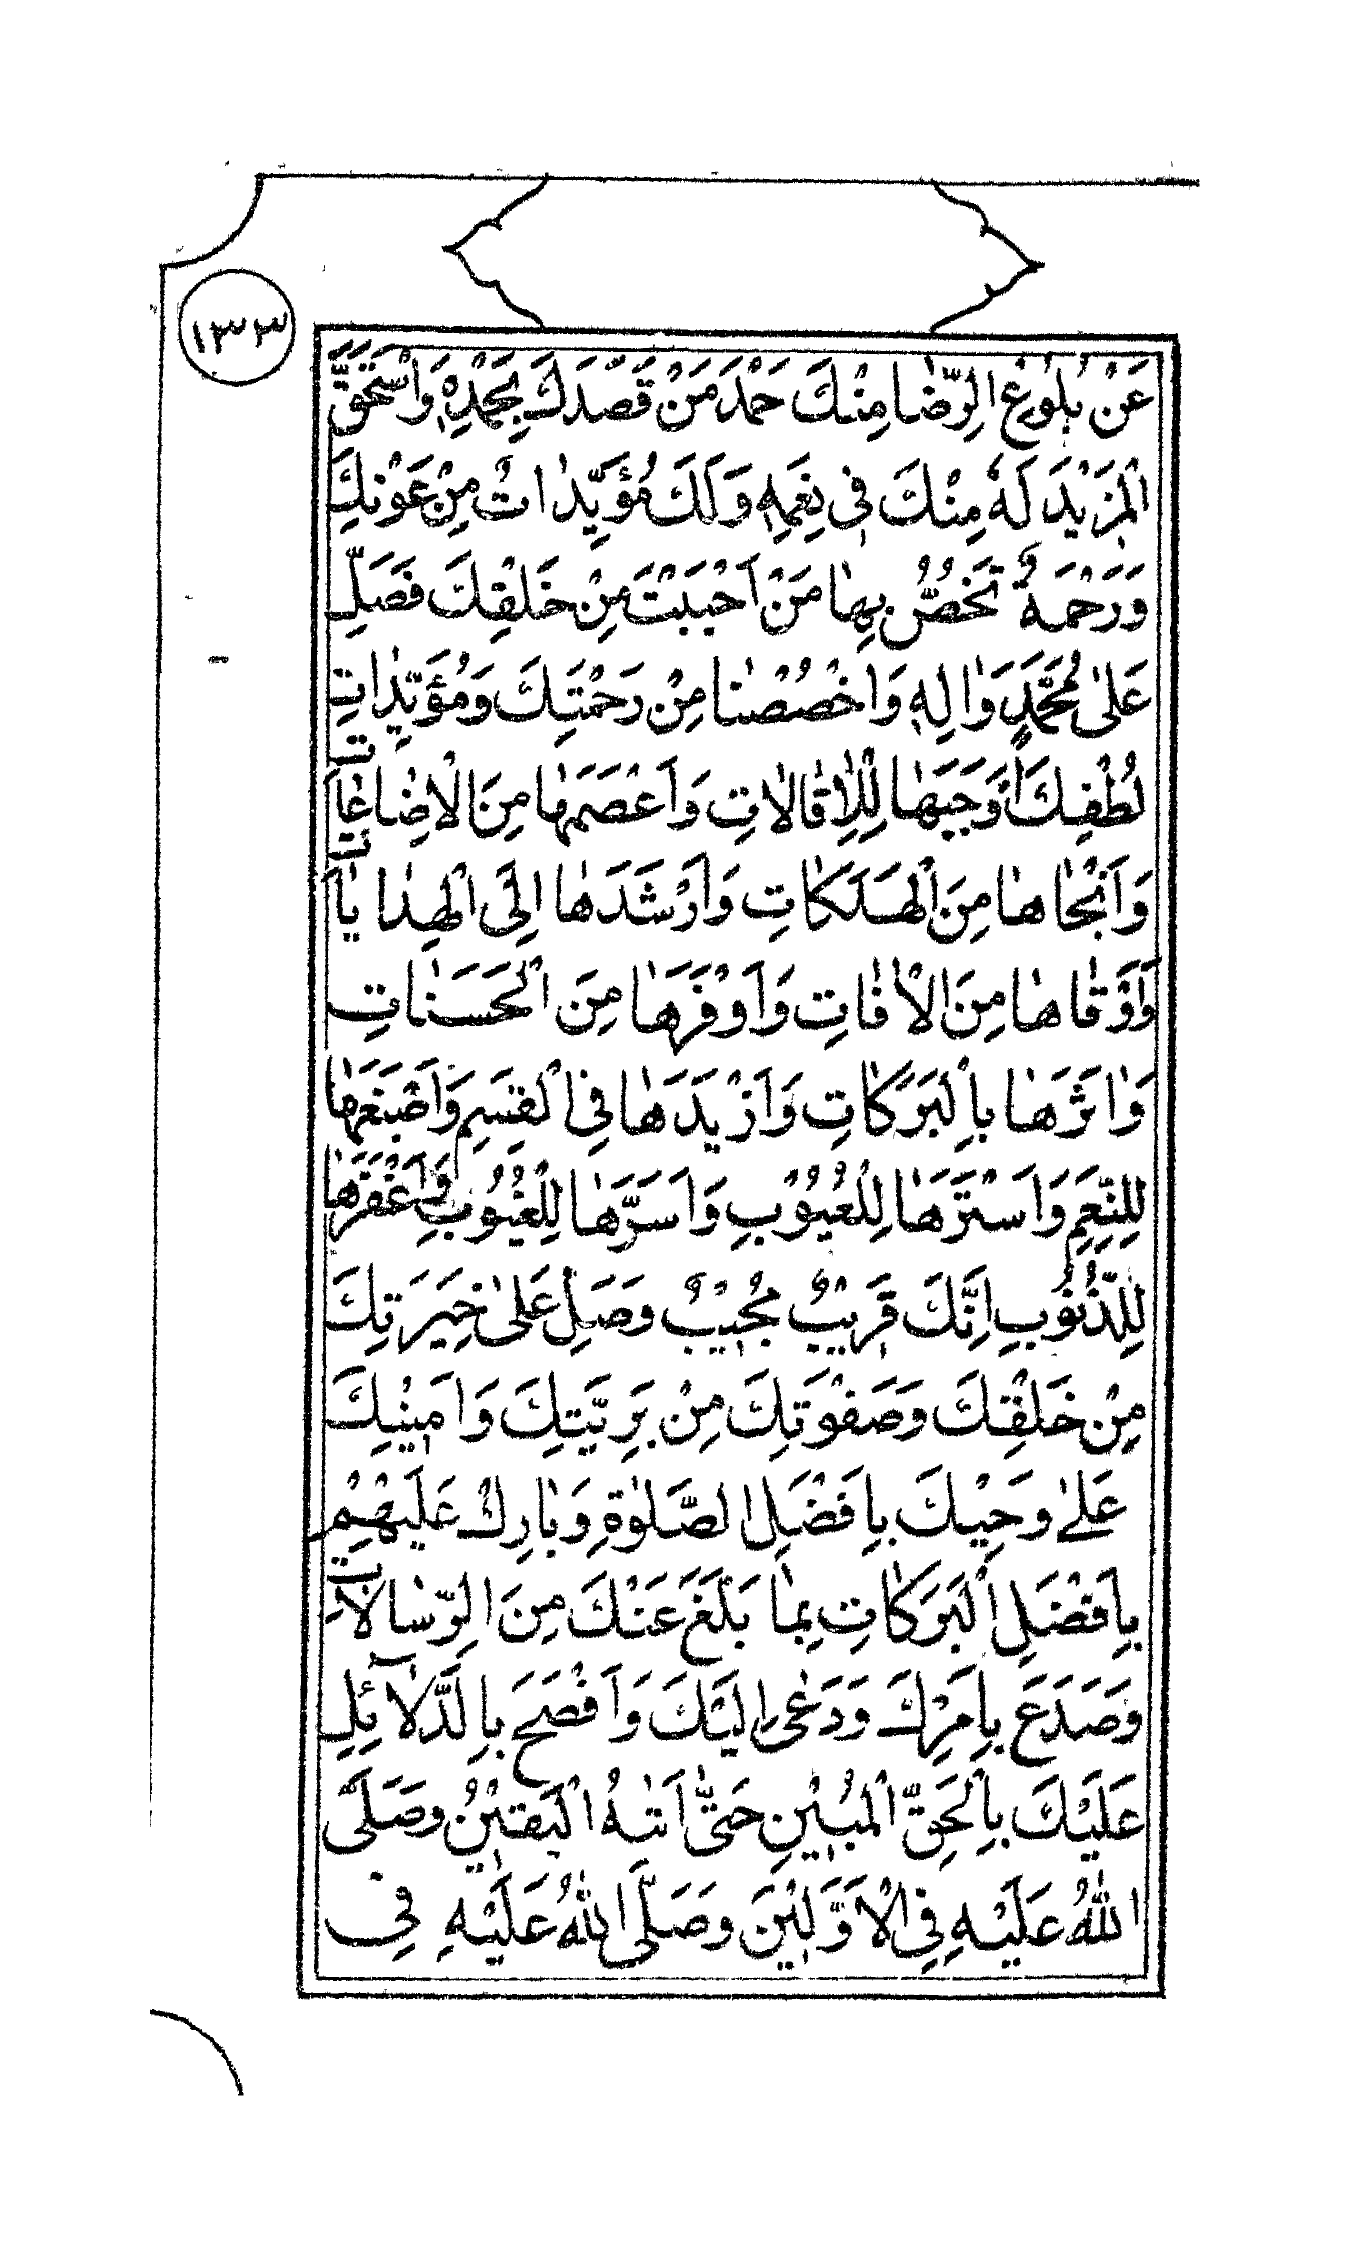 ١٣٣
عَنْ بُلُوْغِ الرِّضٰا مِنْكَ حَمْدَ مَنْ قَصَدَكَ بِحَمْدِهٖ وَاسْتَحَقَّ
الْمَزِيْدَ لَهٗ مِنْكَ فِي نِعَمِهٖ وَلَكَ مُؤَيِّدٰاتٌ مِنْ عَوْنِكَ
وَرَحْمَةٌ تَخُصُّ بِهٰا مَنْ اَحْبَبْتَ مِنْ خَلْقِكَ فَصَلِّ
عَلىٰ مُحَمَّدٍ وَاٰلِهٖ وَاخْصُصْنٰا مِنْ رَحْمَتِكَ وَمُؤَيِّدٰاتِ
لُطْفِكَ اَوْجَبَهٰا لِلْاِقٰالاٰتِ وَاَعْصَمَهٰا مِنَ الْاِضٰاعٰاتِ
وَاَنْجٰاهٰا مِنَ الْهَلَكٰاتِ وَاَرْشَدَهٰا اِلَى الْهِدٰايٰاتِ
وَاَوْقٰاهٰا مِنَ الْاٰفٰاتِ وَاَوْفَرَهٰا مِنَ الْحَسَنٰاتِ
وَاٰثَرَهٰا بِالْبَرَكٰاتِ وَاَزْيَدَهٰا فِي الْقِسَمِ وَاَصْبَغَهٰا
لِلنِّعَمِ وَاَسْتَرَهٰا لِلْعُيُوْبِ وَاَسَرَّهٰا لِلْغُيُوْبِ وَاَغْفَرَهٰا
لِلذُّنُوْبِ اِنَّكَ قَرِيْبٌ مُجِيْبٌ وَصَلِّ عَلىٰ خِيَرَتِكَ
مِنْ خَلْقِكَ وَصَفْوَتِكَ مِنْ بَرِيَّتِكَ وَاَمِيْنِكَ
عَلىٰ وَحْيِكَ بِاَفْضَلِ الصَّلَوٰةِ وَبٰارِكْ عَلَيْهِمْ
بِاَفْضَلِ الْبَرَكٰاتِ بِمٰا بَلَّغَ عَنْكَ مِنَ الرِّسٰالاٰتِ
وَصَدَعَ بِاَمْرِكَ وَدَعٰى اِلَيْكَ وَاَفْصَحَ بِالدَّلاٰئِلِ
عَلَيْكَ بِالْحَقِّ الْمُبِيْنِ حَتّٰى اَتٰيهُ الْيَقِيْنُ وَصَلَّى
اللّٰهُ عَلَيْهِ فِي الْاَوَّلِيْنَ وَصَلَّى اللّٰهُ عَلَيْهِ فِي